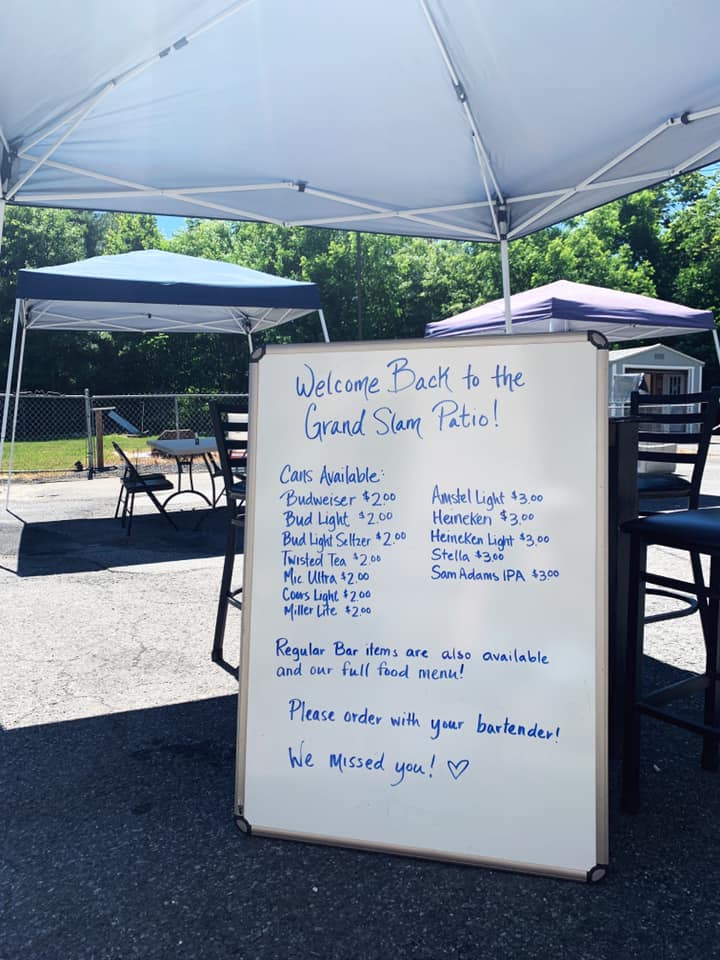 Welcome Back to the
Grand Slam Patio!
Cans Available:
Budweiser $2.00
Bud Light $2.00
Bud Light Seltzer $2.00
Twisted Tea $2.00
Mic Ultra $2.00
Coors Light $2.00
Miller Lite $2.00
Amstel Light $3.00
Heineken $3.00
Heineken Light $3.00
Stella $3.00
Sam Adams IPA $3.00
Regular Bar items are also available
and our full food menu!
Please order with your bartender!
We missed you! ♡